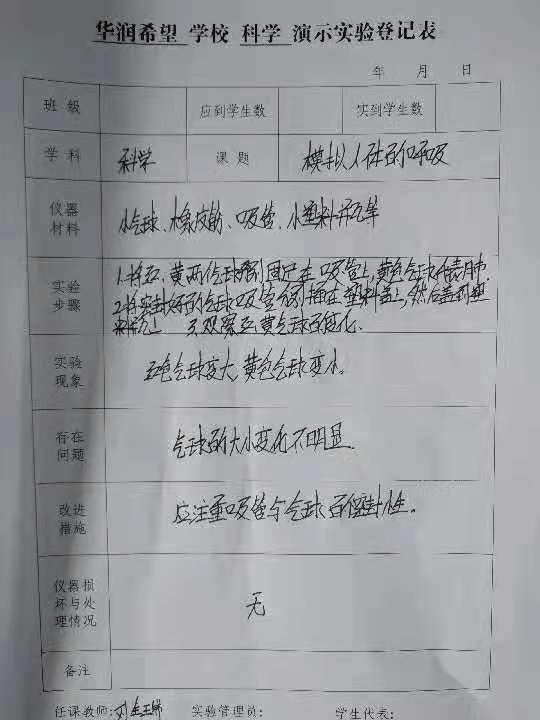 华润希望 学校 科学 演示实验登记表
年 月 日
班级 应到学生数 实到学生数
学科 科学 课题 模拟人体的呼吸
仪器材料 小气球、橡皮筋、吸管、小塑料瓶等
实验步骤 1.将红、黄两个气球分别固定在吸管上,黄色气球代表肺.
2.将密封好的气球吸管分别插在塑料盖上,然后盖到塑
料瓶上 3.观察红、黄气球的变化.
实验现象 红色气球变大,黄色气球变小。
存在问题 气球的大小变化不明显
改进措施 应注重吸管与气球的密封性。
仪器损坏与处理情况 无
备注
任课教师: 实验管理员: 学生代表: